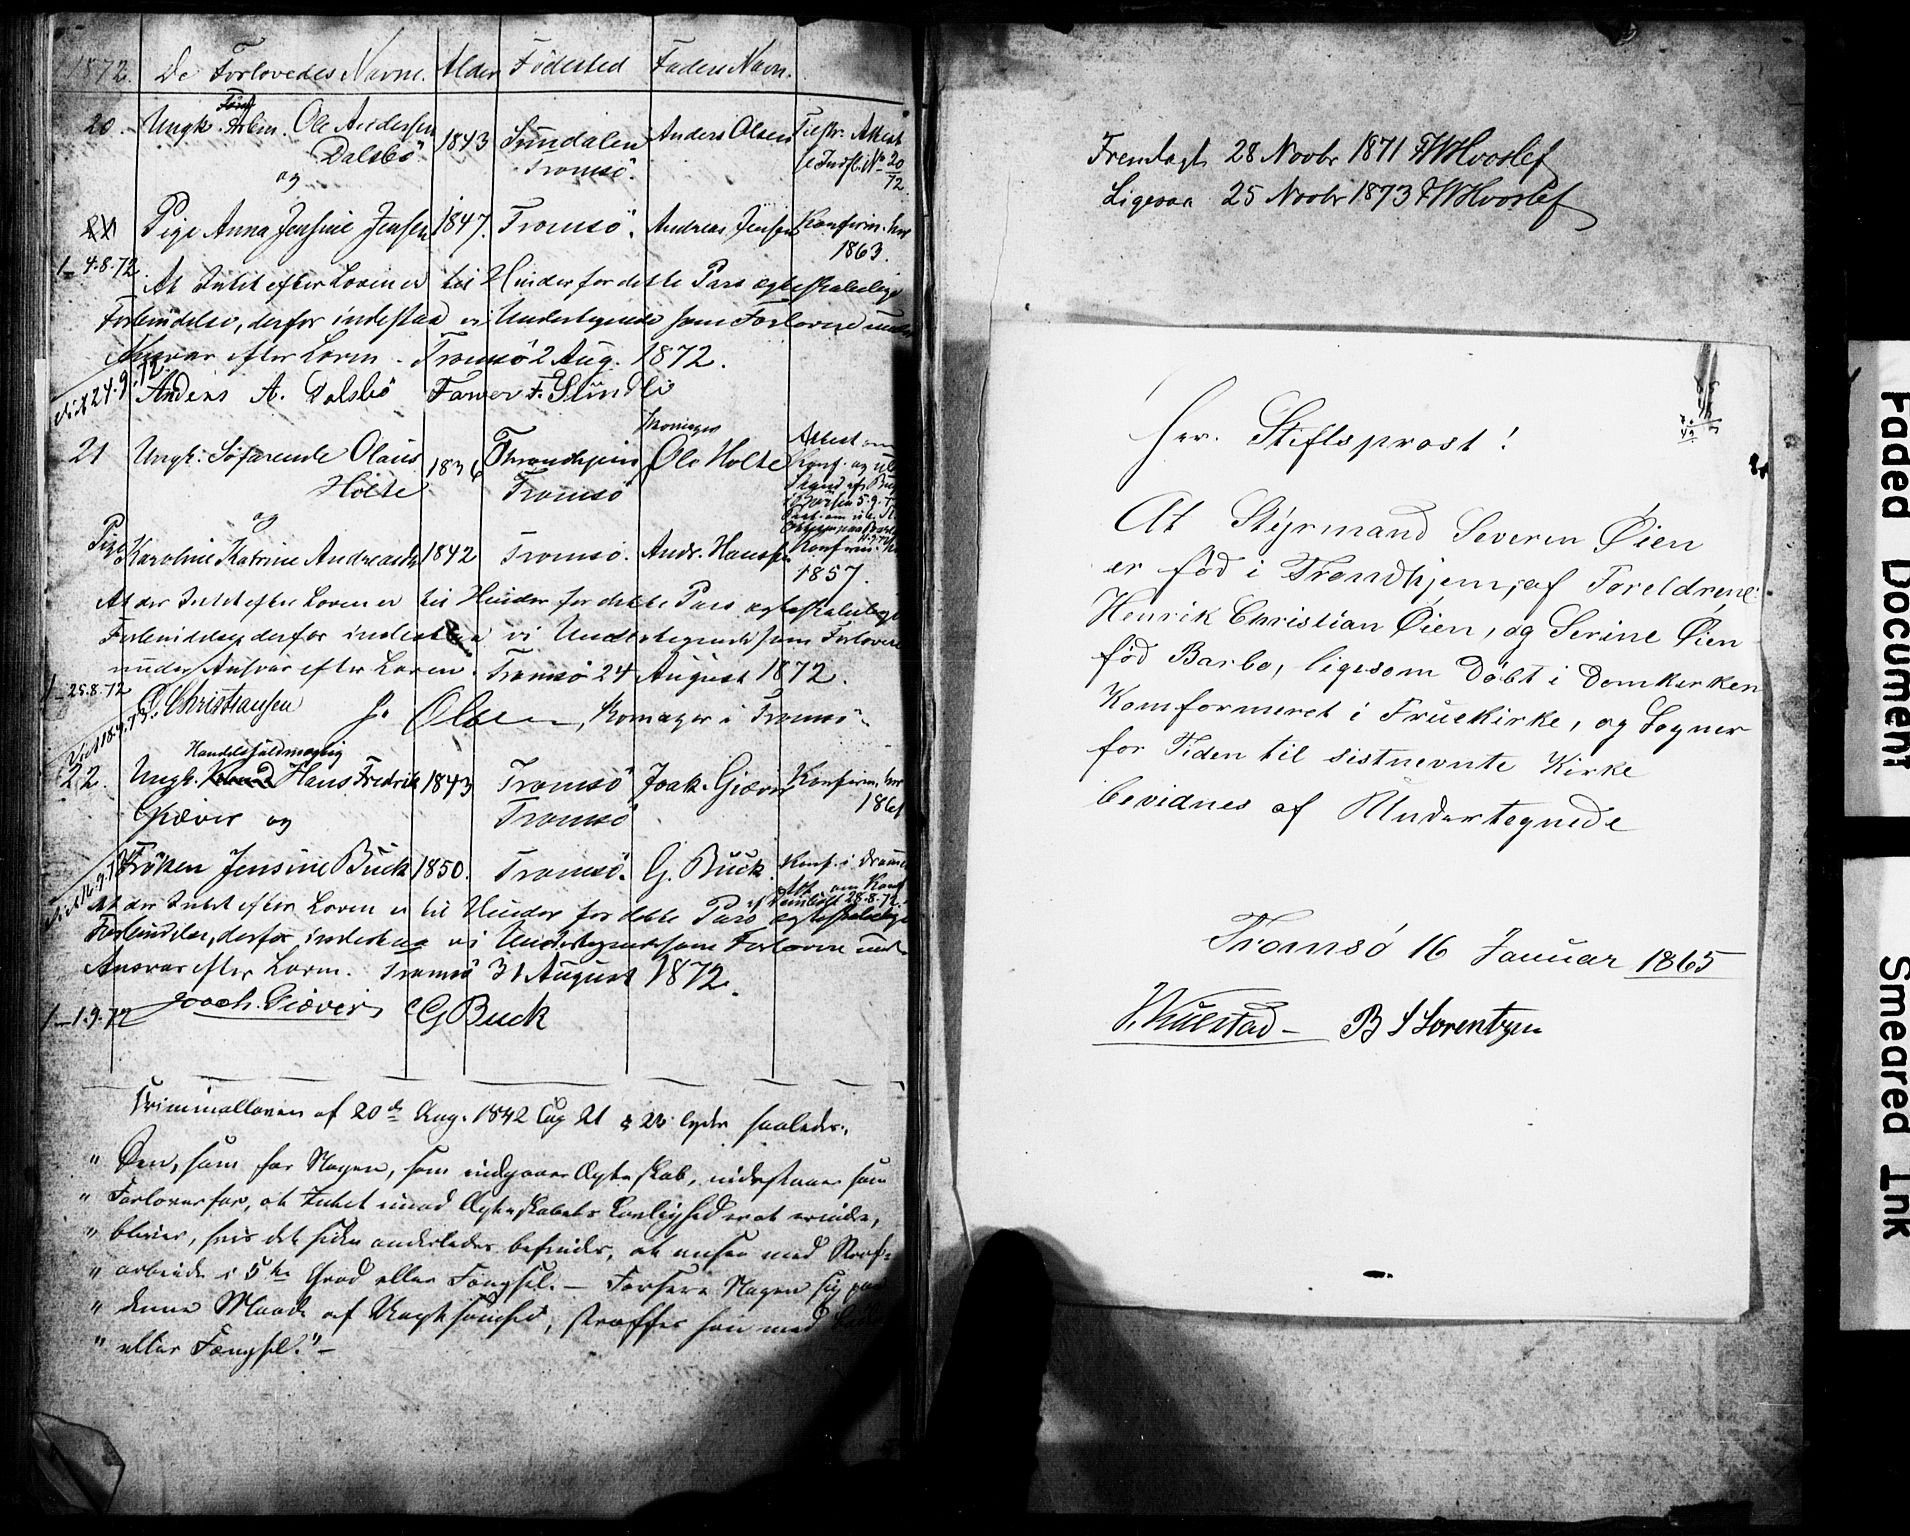 1872. De Forlovedes Navne. Alder Födested Faders Navn.
20. Ungk. Arbm. Ole Andersen 1843 Anders Olsen Attest
Dalsbö Tromsö.
og
Pige Anna Jensine Jensen 1847. Tromsö. Andreas Jensen Konfirm. her
1863.
1_ 4.8.72
At Intet efter Loven er til Hinder for dette Pars ægteskabelige
Forbindelse, derfor indestaa vi Undertegnede som Forlovere under
Ansvar efter Loven. Tromsö 2 Aug. 1872.
Viet 24.9.72.
Anders A. Dalsbö
21 Ungk. Söfarende Olaus 1836 Throndhjem Ole Holte Attest om
Holte Tromsö
og
Pige Karoline Katrine Andreasdtr 1842 Tromsö. Andr. Hansen Konfirm. her
1857.
At der Intet efter Loven er til Hinder for dette Pars ægteskabelige
Forbindelse, derfor indestaa vi Undertegnede som Forlovere
under Ansvar efter Loven. Tromsö 24 August 1872.
1_ 25.8.72
Christiansen Olsen, Komager i Tromsö
Handelsfuldmægtig
22. Ungk. Hans Fredrik 1843 Tromsö Joak. Giæver Konfirm. her
Giæver og Tromsö 1861
Fröken Jensine Buck 1850. Tromsö. G. Buck. Konf. i
Att. om Konf
28.8.72.
At der Intet efter Loven er til Hinder for dette Pars ægteskabelige
Forbindelse, derfor indestaa vi Undertegnede som Forlovere under
Ansvar efter Loven. Tromsö 31 August 1872.
Joach. Giæver G Buck
1_ 1.9.72
Criminalloven af 20de Aug. 1842 Cap 21 § 22 lyder saaledes:
" Den, som for Nogen, som indgaaer Ægteskab, indestaaer som
" Forlover for, at Intet imod Ægteskabets Lovlighed er at erindre,
" bliver, hvis det siden anderledes befindes, at ansee med Straf-
" arbeide i 5te Grad eller Fængsel. – Forseer Nogen sig paa
" denne Maade af Uagtsomhed, straffes han med
" eller Fængsel." –
Fremlagt 28 Novbr 1871 FWHvoslef
Ligesaa 25 Novbr 1873 FWHvoslef
Her. Stiftsprost!
At Styrmand Severin Øien
er föd i Trondhjem, af Foreldrene
Henrik Christian Øien, og Serine Øien
föd Barbo, ligesom Döbt i Domkirken
Komformeret i Fruekirke, og Sogner
for Tiden til sistnevnte Kirke
bevidnes af Undertegnede
Tromsö 16 Januar 1865
B S Lorentzen
Faded Document
Smeared Ink